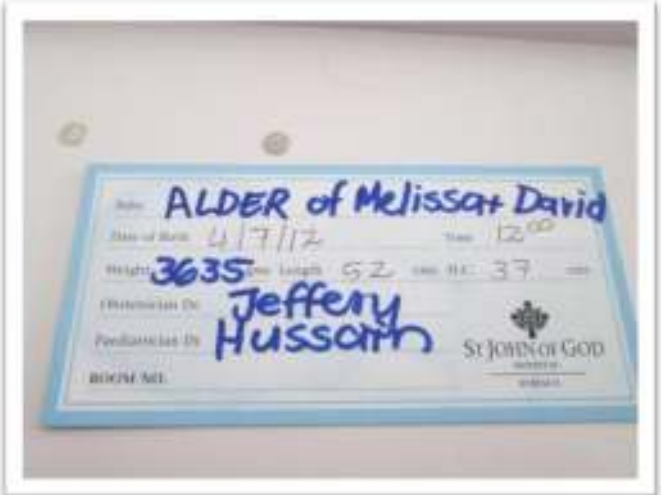 Baby ALDER of Melissa + David
Date of Birth 4/7/12 Time 12⁰⁰
Weight 3635 gms Length 52 cms H.C. 37 cms
Obstetrician Dr. Jeffery
Paediatrician Dr Hussain
ST JOHN OF GOD
ROOM NO.